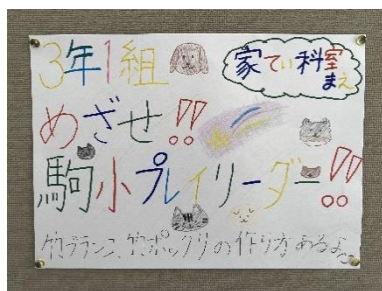 3年1組
家てい科室
まえ
めざせ!!
駒小プレイリーダー!!
竹ブランコ、竹ポックリの作り方あるよ